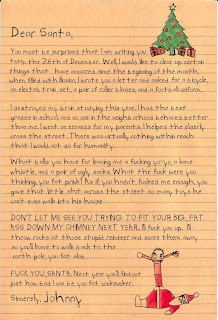 Dear Santa,
You must be surprised that I am writing you
today, the 26th of December. Well, I would like to clear up certain
things that have occurred since the beginning of the month,
when, filled with illusion, I wrote you a letter and asked for a bicycle,
an electric train set, a pair of roller blades, and a football uniform.
I destroyed my brain studying this year. I had the best
grades in school, and no one in the neighborhood behaved better
than me. I went on errands for my parents, I helped the elderly
cross the street. There was virtually nothing within reach
that I would not do for humanity.
What balls you have for leaving me a fucking yo-yo, a lame
whistle, and a pair of ugly socks. What the fuck were you
thinking, you fat prick? As if you hadn't fucked me enough, you
gave that little shit across the street so many toys he
can't even walk into his house.
DON'T LET ME SEE YOU TRYING TO FIT YOUR BIG, FAT
ASS DOWN MY CHIMNEY NEXT YEAR. I'll fuck you up. I'll
throw rocks at those stupid reindeer and scare them away,
so you'll have to walk back to the
north pole, you fat
FUCK YOU, SANTA. Next year you'll find out
just how bad I can be, you fat cocksucker.
Sincerely, Johnny